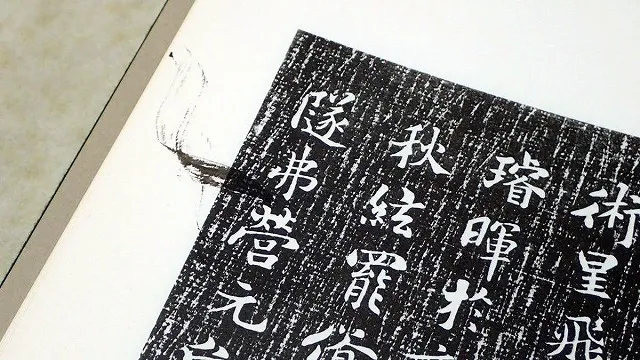 術星飛
璿暉於
秋絃罷
隧弗營元